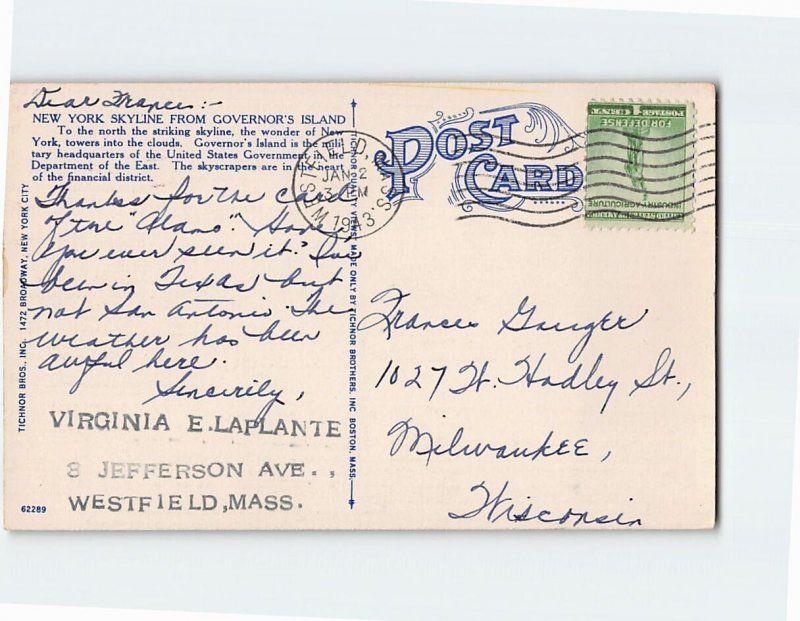 Dear Frances:-
NEW YORK SKYLINE FROM GOVERNOR'S ISLAND
To the north the striking skyline, the wonder of New
York, towers into the clouds. Governor's Island is the mili-
tary headquarters of the United States Government in the
Department of the East. The skyscrapers are in the
of the financial district.
Thanks for the card
of the "Alamo". Have
you ever seen it? I've
been in Texas but
not San Antonio. The
weather has been
awful here.
Sincerely,
VIRGINIA E. LAPLANTE
8 JEFFERSON AVE.,
WESTFIELD, MASS.
62289
TICHNOR BROS., INC., 1472 BROADWAY, NEW YORK CITY
TICHNOR QUALITY VIEWS, MADE ONLY BY TICHNOR BROTHERS, INC. BOSTON, MASS.
POST CARD
WESTFIELD, MASS.
JAN 2
3 PM
1943
POSTAGE 1 CENT
FOR DEFENSE
INDUSTRY-AGRICULTURE
UNITED STATES OF AMERICA
Frances Gauger
1027 W. Hadley St.,
Milwaukee,
Wisconsin